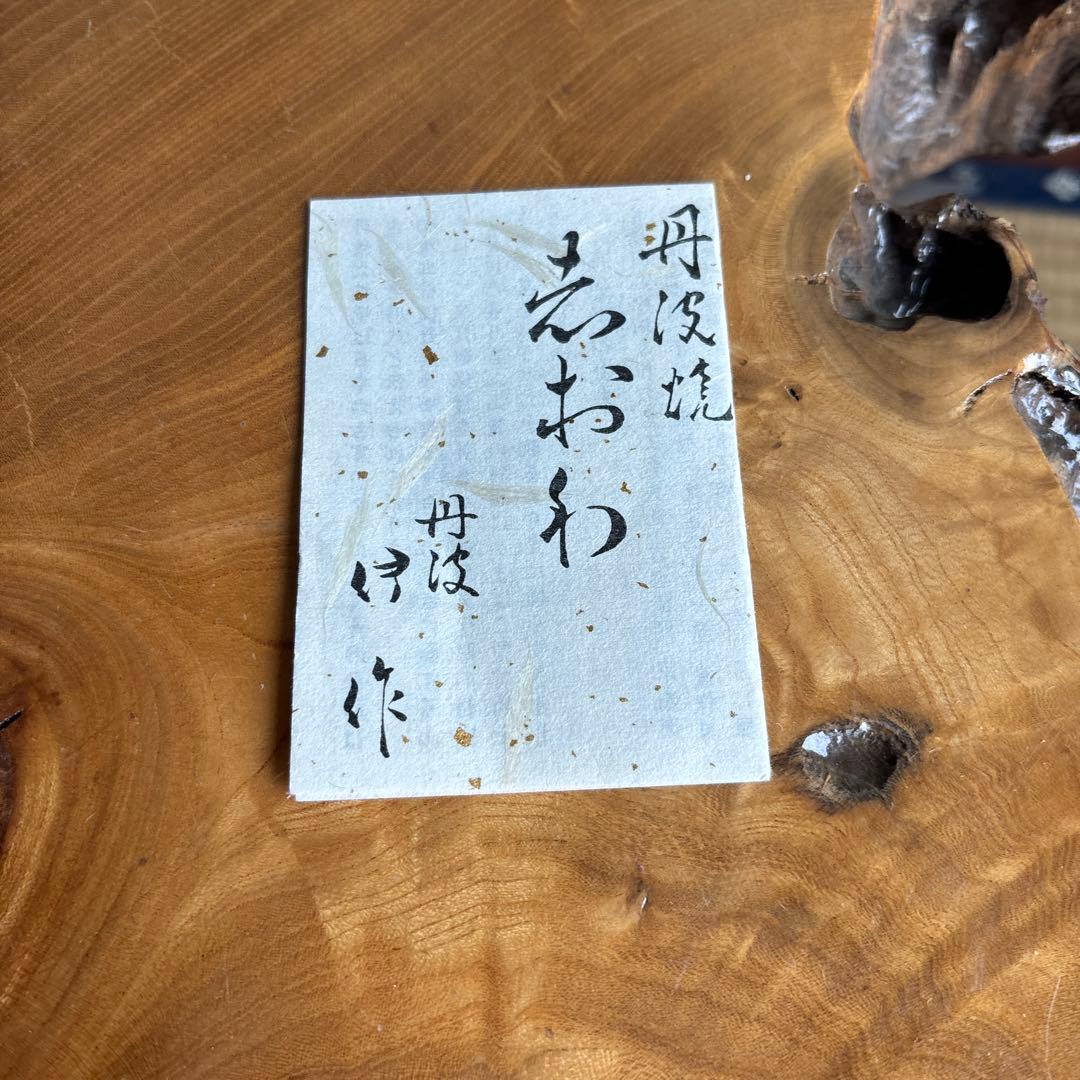 丹波焼
志おり
丹波
伊作